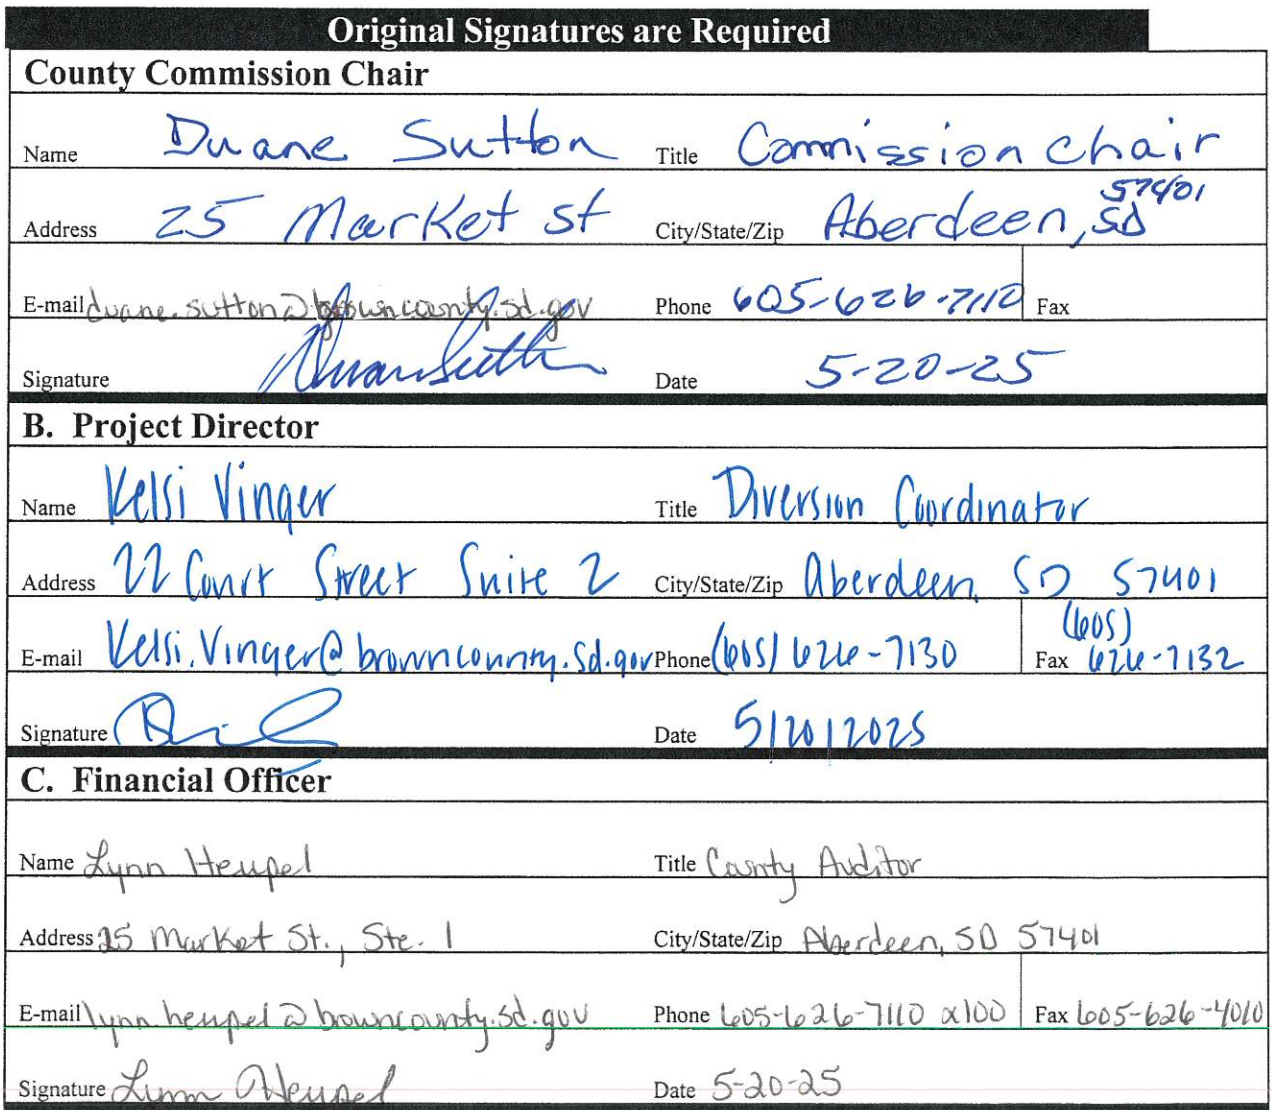 Original Signatures are Required
County Commission Chair
Name Duane Sutton Title Commission Chair
57401
Address 25 Market St City/State/Zip Aberdeen, SD
E-mail duane.sutton@browncounty.sd.gov Phone 605-626-7110 Fax
Signature Duane Sutton Date 5-20-25
B. Project Director
Name Kelsi Vinger Title Diversion Coordinator
Address 22 Court Street Suite 2 City/State/Zip Aberdeen, SD 57401
(605)
E-mail Kelsi.Vinger@browncounty.sd.gov Phone (605) 626-7130 Fax 626-7132
Signature Date 5/20/2025
C. Financial Officer
Name Lynn Heupel Title County Auditor
Address 25 Market St., Ste. 1 City/State/Zip Aberdeen, SD 57401
E-mail lynn.heupel@browncounty.sd.gov Phone 605-626-7110 x100 Fax 605-626-4010
Signature Lynn Heupel Date 5-20-25